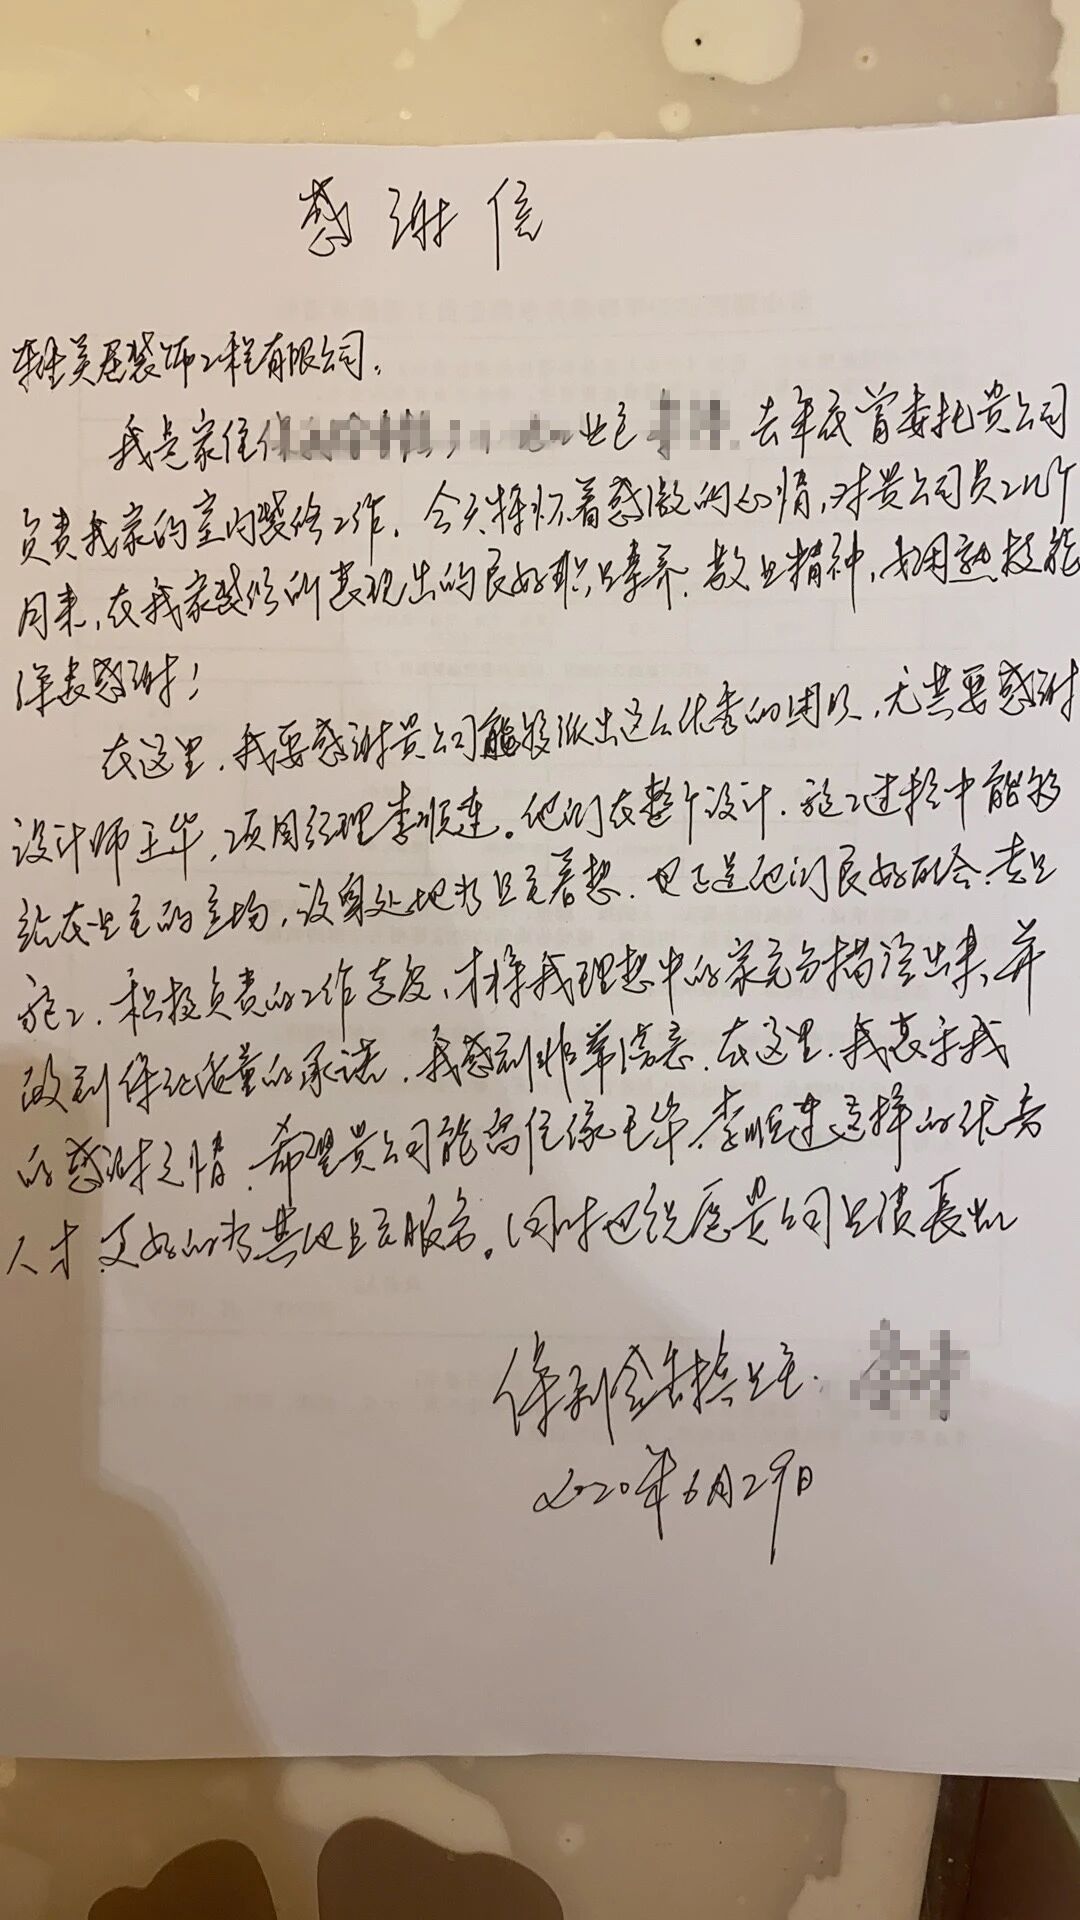 感谢信
美居装饰工程有限公司：
我是家住 业主 去年底曾委托贵公司
负责我家的室内装修工作。今天择怀着感激的心情，对贵公司员工几个
月来，在我家装修所表现出的良好职业素养、敬业精神，娴熟技能
深表感谢！
在这里，我要感谢贵公司能够派出这么优秀的团队，尤其要感谢
设计师王华，项目经理李顺连。他们在整个设计、施工过程中能够
站在业主的立场，设身处地为业主着想。也正是他们良好配合、
施工、积极负责的工作态度，才将我理想中的家充分描绘出来，并
做到保证质量的承诺，我感到非常满意。在这里，我表示我
的感谢之情，希望贵公司能留住像王华、李顺连这样的优秀
人才，更好的为其他业主服务。同时也祝愿贵公司业绩长虹
保利 业主：
2020年6月29日